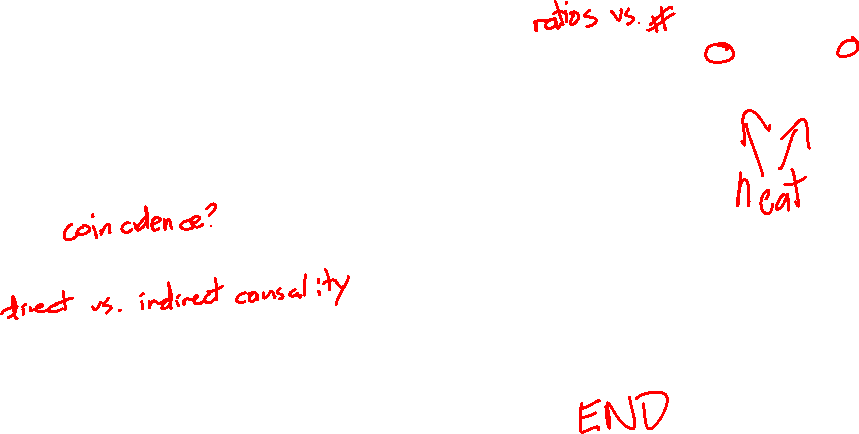 ratios vs. #
heat
coincidence?
direct vs. indirect causality
END